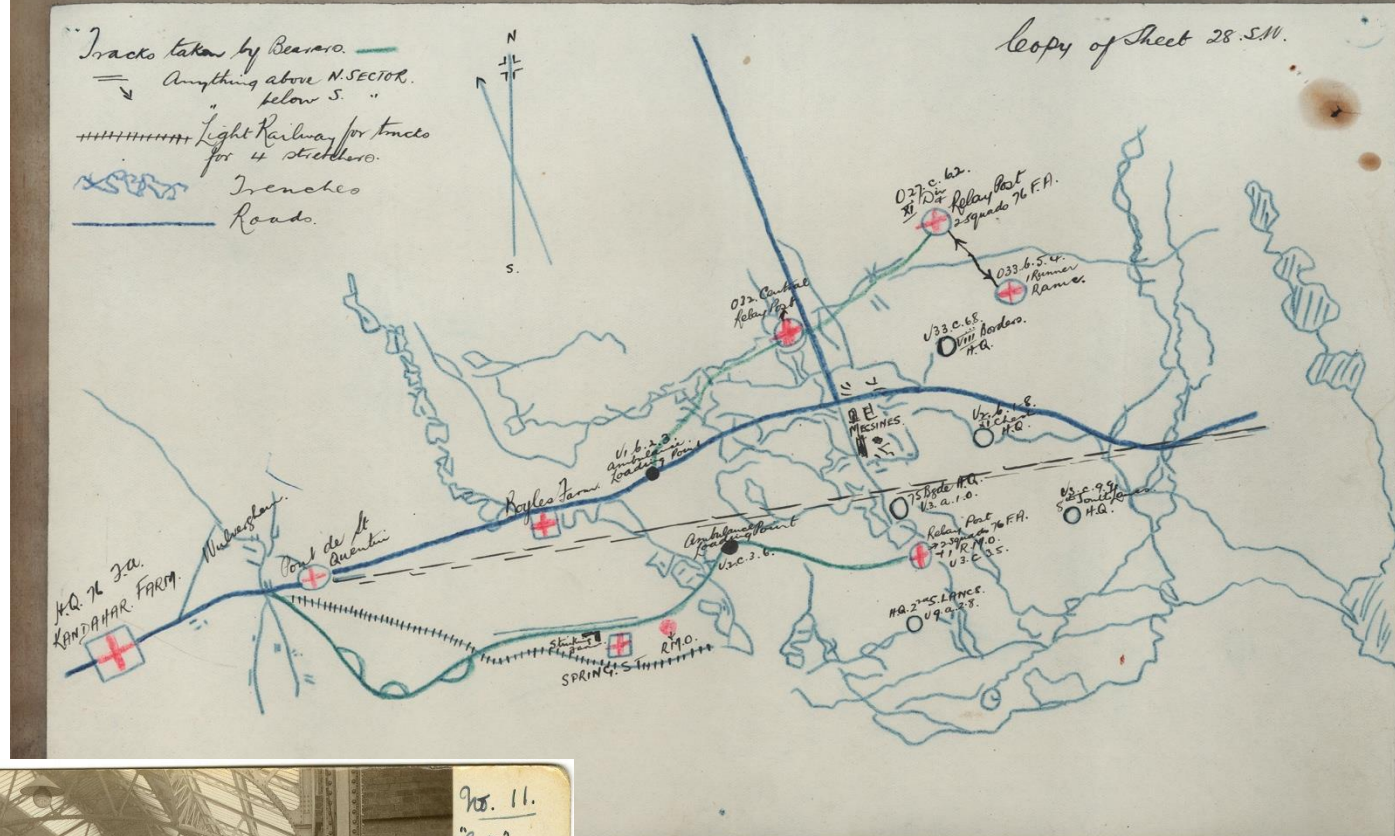 Tracks taken by Bearers.
Anything above N. SECTOR.
" below S. "
Light Railway for trucks
for 4 stretchers.
Trenches
Roads.
N
S.
Copy of Sheet 28.S.W.
O27.c.62.
XI Div
Relay Post
2 squads 76 F.A.
O33.b.5.4.
1 Runner
Ramc.
O32. Central
Relay Post
U33.c.68.
VIII Borders.
H.Q.
MESSINES.
XI Chesh
H.Q.
U1.b.2.3.
Ambulance
Loading Point
Boyles Farm.
75 Bgde H.Q.
U3.a.1.0.
H.Q.
Ambulance
Loading Point
U2.c.3.6.
Relay Post
2 squads 76 F.A.
+ 1 R.M.O.
U3.C.3.5.
H.Q. 2nd S. LANCS.
U9.a.2.8.
Wulverghem.
Pont de St
Quentin
H.Q. 76 F.A.
KANDAHAR. FARM.
R.M.O.
SPRING. ST
No. 11.